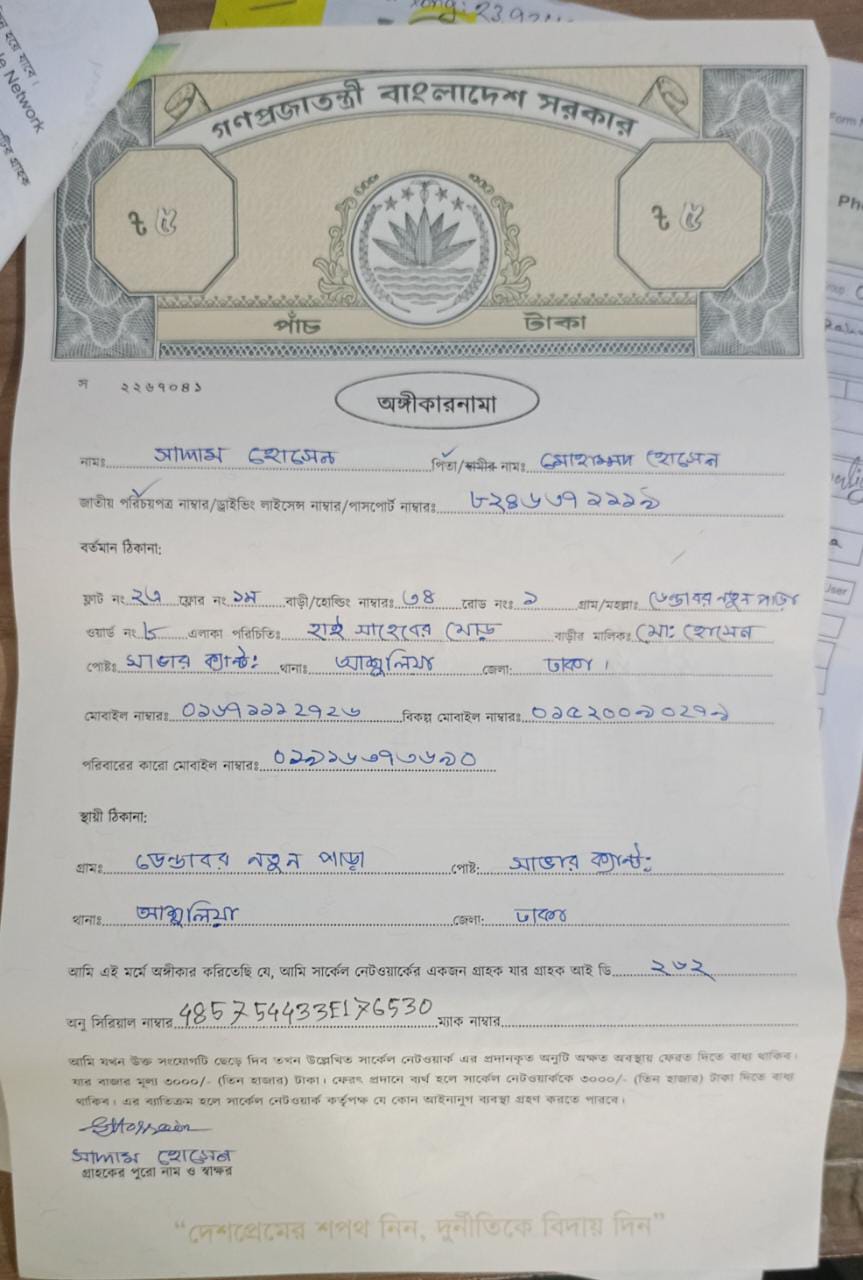 গণপ্রজাতন্ত্রী বাংলাদেশ সরকার
৳ ৫ ৳ ৫
পাঁচ টাকা
স ২২৬৭০৪১
অঙ্গীকারনামা
নামঃ সাদ্দাম হোসেন পিতা/স্বামীর নামঃ মোহাম্মদ হোসেন
জাতীয় পরিচয়পত্র নাম্বার/ড্রাইভিং লাইসেন্স নাম্বার/পাসপোর্ট নাম্বারঃ ৮২৪৬৩৭১১১৯
বর্তমান ঠিকানা:
ফ্লাট নং ২৩ ফ্লোর নং ১ম বাড়ী/হোল্ডিং নাম্বারঃ ৩৪ রোড নংঃ ১ গ্রাম/মহল্লাঃ ডেন্ডাবর নতুন পাড়া
ওয়ার্ড নং ৮ এলাকা পরিচিতিঃ হাই সাহেবের মোড় বাড়ীর মালিকঃ মোঃ হোসেন
পোষ্টঃ সাভার ক্যান্টঃ থানাঃ আশুলিয়া জেলা: ঢাকা।
মোবাইল নাম্বারঃ ০১৬৭১১১২৭২৬ বিকল্প মোবাইল নাম্বারঃ ০১৫২০০৯০২৭৯
পরিবারের কারো মোবাইল নাম্বারঃ ০১৯১৬৩৭৩৬৯০
স্থায়ী ঠিকানা:
গ্রামঃ ডেন্ডাবর নতুন পাড়া পোষ্ট: সাভার ক্যান্টঃ
থানাঃ আশুলিয়া জেলা: ঢাকা
আমি এই মর্মে অঙ্গীকার করিতেছি যে, আমি সার্কেল নেটওয়ার্কের একজন গ্রাহক যার গ্রাহক আই ডি ২৬২
অনু সিরিয়াল নাম্বার 485754433E176530 ম্যাক নাম্বার
আমি যখন উক্ত সংযোগটি ছেড়ে দিব তখন উল্লেখিত সার্কেল নেটওয়ার্ক এর প্রদানকৃত অনুটি অক্ষত অবস্থায় ফেরত দিতে বাধ্য থাকিব।
যার বাজার মূল্য ৩০০০/- (তিন হাজার) টাকা। ফেরৎ প্রদানে ব্যর্থ হলে সার্কেল নেটওয়ার্ককে ৩০০০/- (তিন হাজার) টাকা দিতে বাধ্য
থাকিব। এর ব্যতিক্রম হলে সার্কেল নেটওয়ার্ক কর্তৃপক্ষ যে কোন আইনানুগ ব্যবস্থা গ্রহণ করতে পারবে।
সাদ্দাম হোসেন
গ্রাহকের পুরো নাম ও স্বাক্ষর
“দেশপ্রেমের শপথ নিন, দুর্নীতিকে বিদায় দিন”